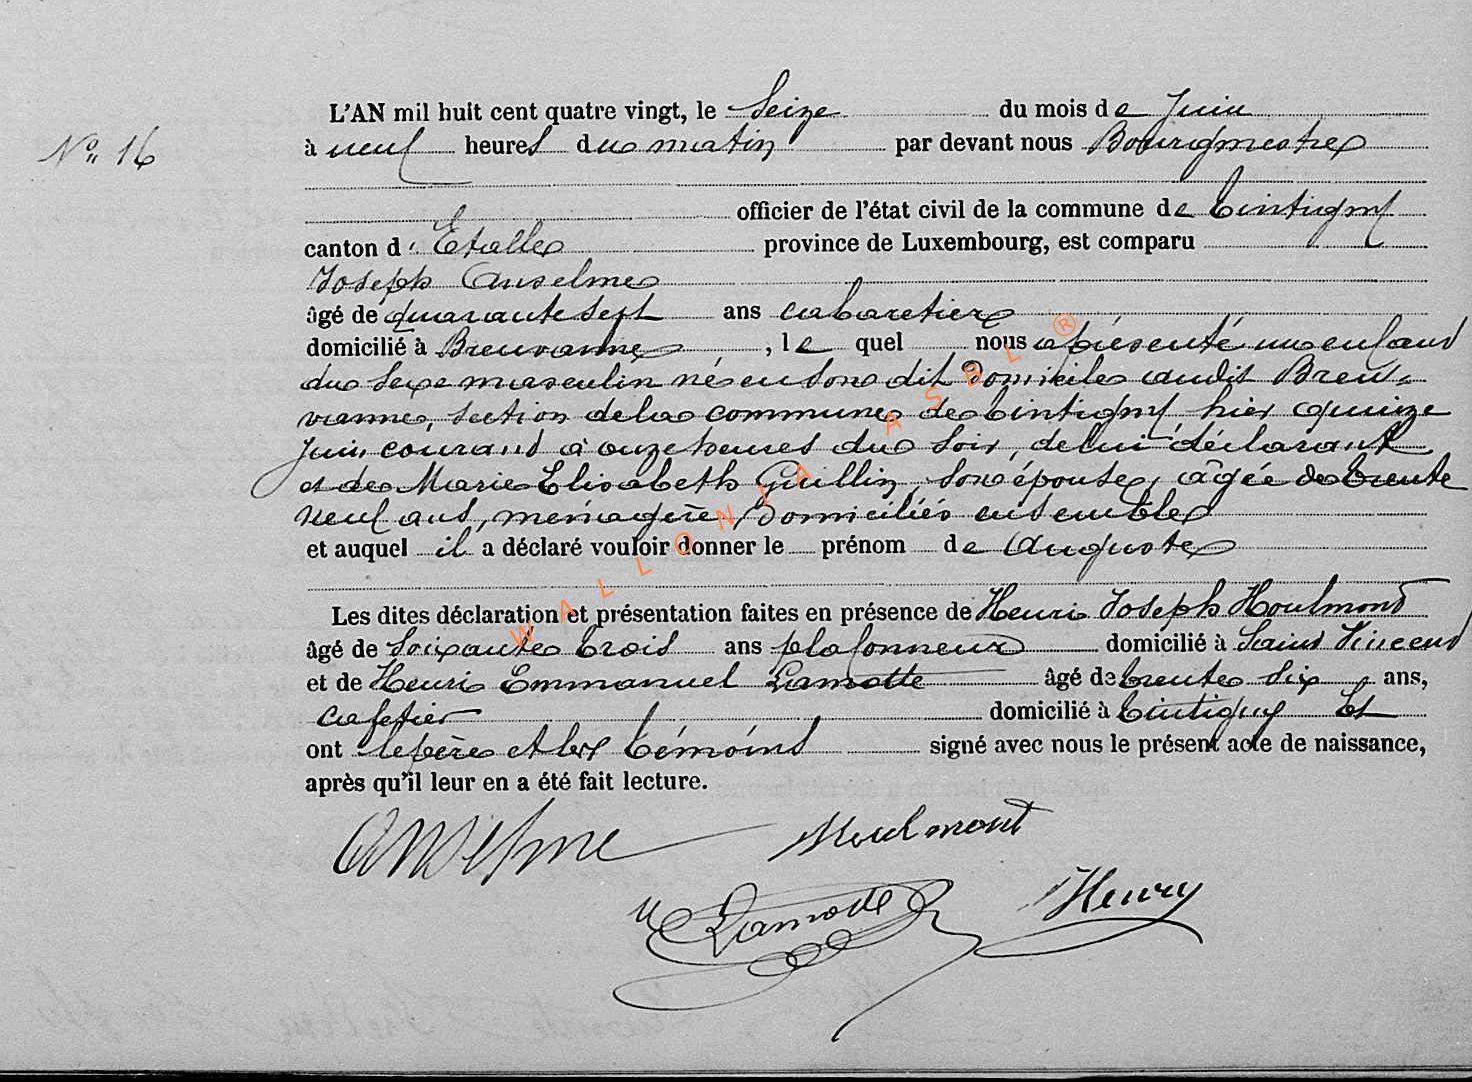 L'AN mil huit cent quatre vingt, le Seize du mois de Juin
No 16
à neuf heures du matin par devant nous Bourgmestre
officier de l'état civil de la commune de Tintigny
canton d'Etalle province de Luxembourg, est comparu
Joseph Anselme
âgé de quarante sept ans cabaretier
domicilié à Breuvanne, le quel nous a présenté un enfant
du sexe masculin né en son dit domicile audit Breu-
vanne, section de la commune de Tintigny hier quinze
juin courant à onze heures du soir, de lui déclarant
et de Marie Elisabeth Guillin, son épouse, âgée de trente
neuf ans, ménagère, domiciliés ensemble
et auquel il a déclaré vouloir donner le prénom de Auguste
Les dites déclaration et présentation faites en présence de Henri Joseph Houlmont
âgé de soixante trois ans plafonneur domicilié à Saint Vincent
et de Henri Emmanuel Lamotte âgé de trente six ans,
cafetier domicilié à Tintigny Et
ont le père et les témoins signé avec nous le présent acte de naissance,
après qu'il leur en a été fait lecture.
Anselme Houlmont
Lamotte Henry
WALLONIA ASBL ®